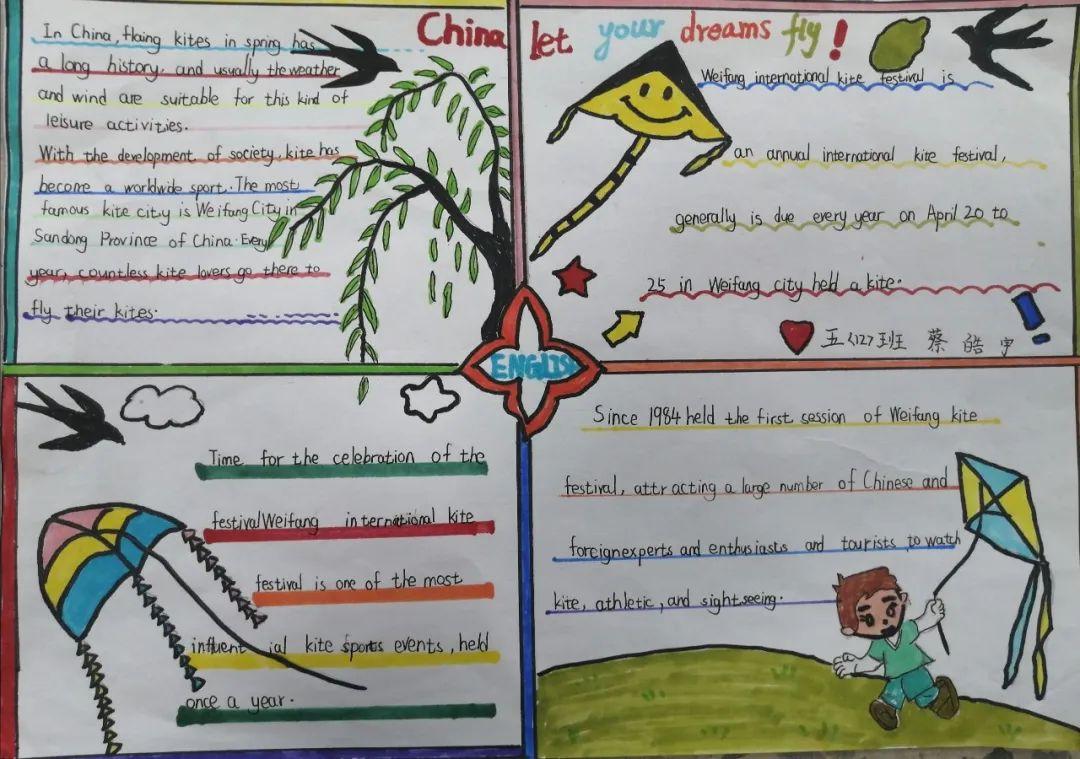 China
let your dreams fly!
In China, flaing kites in spring has
a long history. and usually the weather
and wind are suitable for this kind of
leisure activities.
With the development of society, kite has
become a worldwide sport. The most
famous kite city is Weifang City in
Sandong Province of China. Every
year, countless kite lovers go there to
fly their kites.
Weifang international kite festival is
an annual international kite festival,
generally is due every year on April 20 to
25 in Weifang city held a kite.
五〈12〉班 蔡皓宇
ENGLISH
Time for the celebration of the
festival Weifang international kite
festival is one of the most
influent ial kite sports events, held
once a year.
Since 1984 held the first session of Weifang kite
festival, attracting a large number of Chinese and
foreignexperts and enthusiasts and tourists to watch
kite, athletic, and sightseeing.